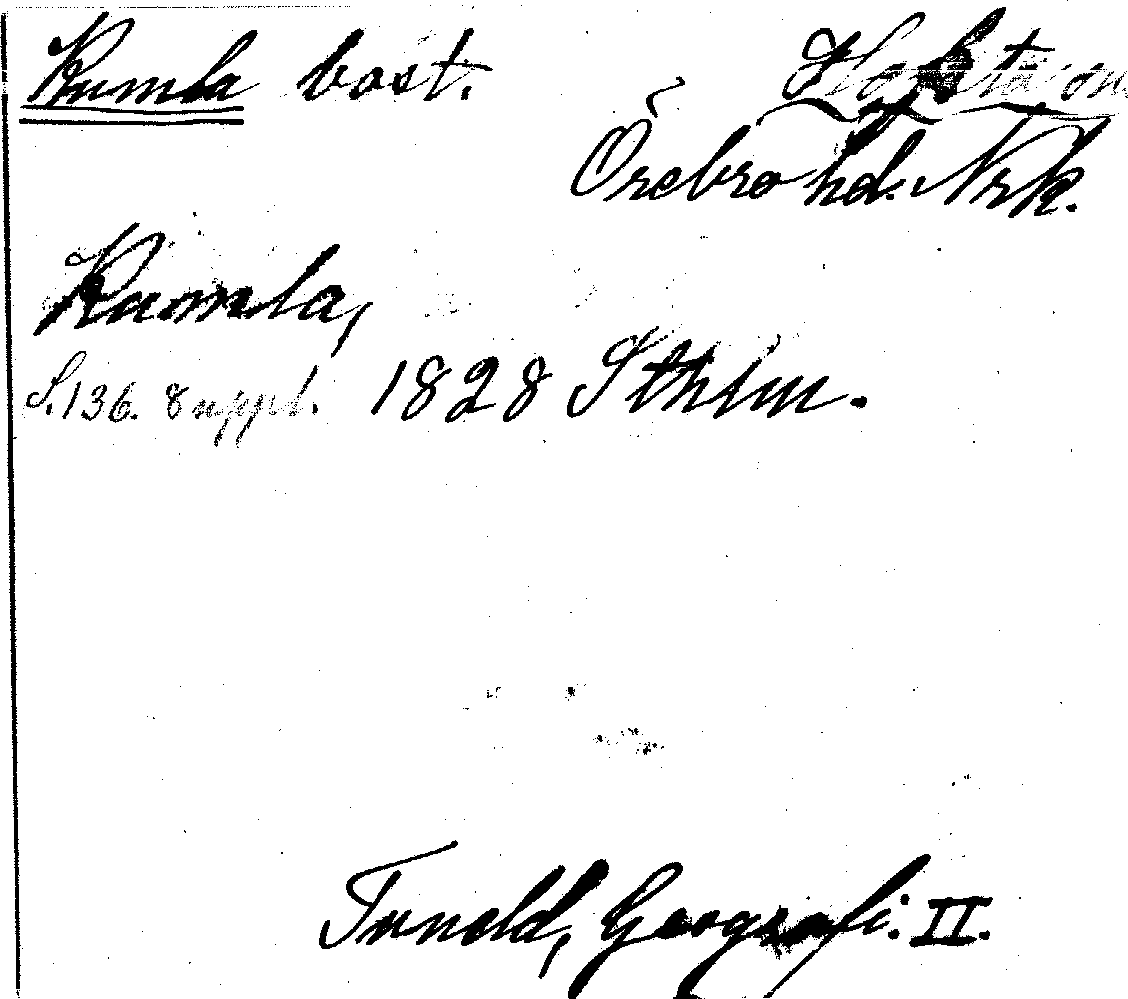 Kumla bost.
Örebro hd. Nrk.
Kumla,
S. 136. suppl. 1828 Sthlm.
Tuneld, Geografi. II.